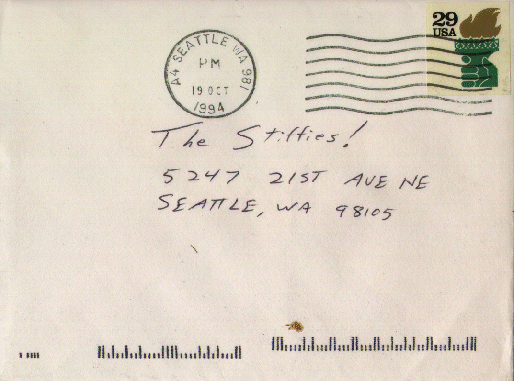 29
USA
A4 SEATTLE WA 981
PM
19 OCT
1994
The Stilfies!
5247 21ST AVE NE
SEATTLE, WA 98105